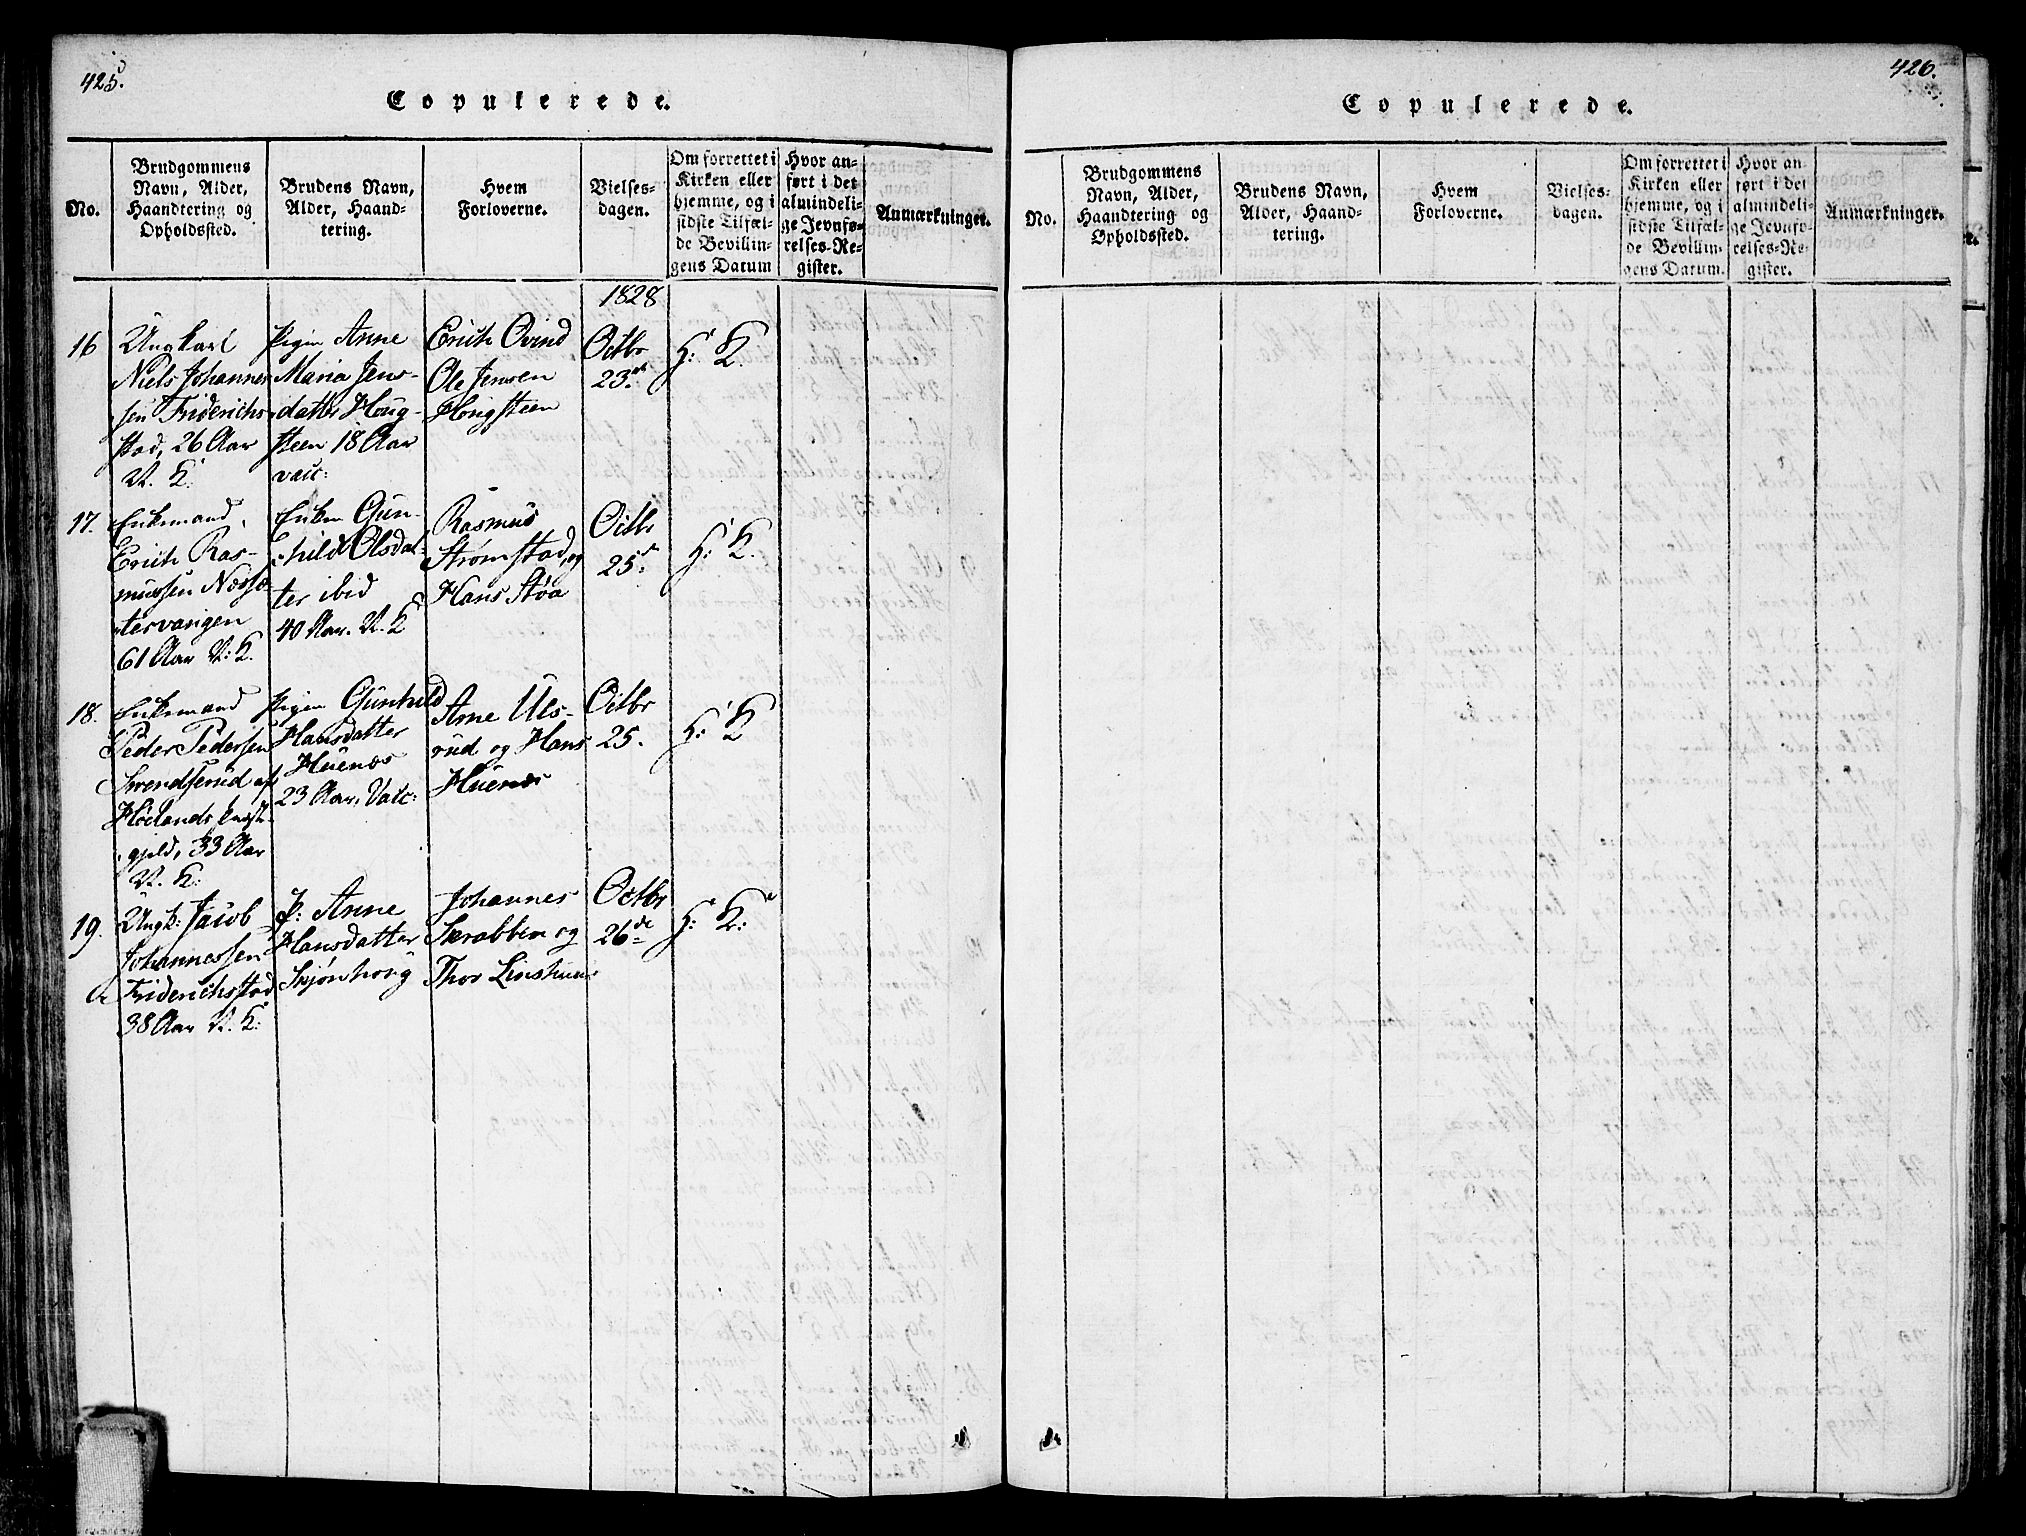 425.
Copulerede.
No.
Brudgommens
Navn, Alder,
Haandtering og
Opholdssted.
Brudens Navn,
Alder, Haand-
tering.
Hvem
Forloverne.
Vielses-
dagen.
Om forrettet i
Kirken eller
hjemme, og i
sidste Tilfæl-
de Bevillin-
gens Datum
Hvor an-
ført i det
almindeli-
ge Jevnfø-
relses-Re-
gister.
Anmærkninger.
1828
16
Ungkarl
Niels Johannes-
sen Friderichs-
stad, 26 Aar
V. K.
Pigen Anne
Maria Jens-
datter Houg-
steen 18 Aar
vacc:
Erich Ovind
Ole Jensen
Hougsteen
Octbr
23.
H: K.
17.
Enkemand
Erich Ras-
mussen Næsse-
tervangen
61 Aar V: K.
Enken Gun-
hild Olsdat-
ter ibid
40 Aar. V. K
Rasmus
Strømstad, og
Hans Støa
Octbr
25
H: K.
18.
Enkemand
Peder Pedersen
Svendserud af
Hølands Præst-
gjeld, 33 Aar
V. K:
Pigen Gunhild
Hansdatter
Huenæs
23 Aar. Vacc:
Arne Uls-
rud og Hans
Huenæs
Octbr
25.
H: K
19.
Ungk: Jacob
Johannessen
Friderichsstad
38 Aar V. K:
P: Anne
Hansdatter
Skjønhoug
Johannes
Skrabben og
Thor
Octbr
26de
H: K:
426.
Copulerede.
No.
Brudgommens
Navn, Alder,
Haandtering og
Opholdssted.
Brudens Navn,
Alder, Haand-
tering.
Hvem
Forloverne.
Vielses-
dagen.
Om forrettet i
Kirken eller
hjemme, og i
sidste Tilfæl-
de Bevillin-
gens Datum.
Hvor an-
ført i det
almindeli-
ge Jevnfø-
relses-Re-
gister.
Anmærkninger.